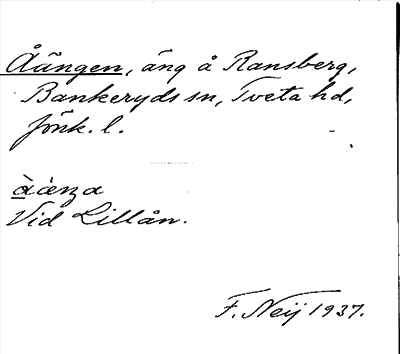 Åängen, äng å Ransberg,
Bankeryds sn, Tveta hd,
Jönk. l.
Vid Lillån.
F. Neij 1937.